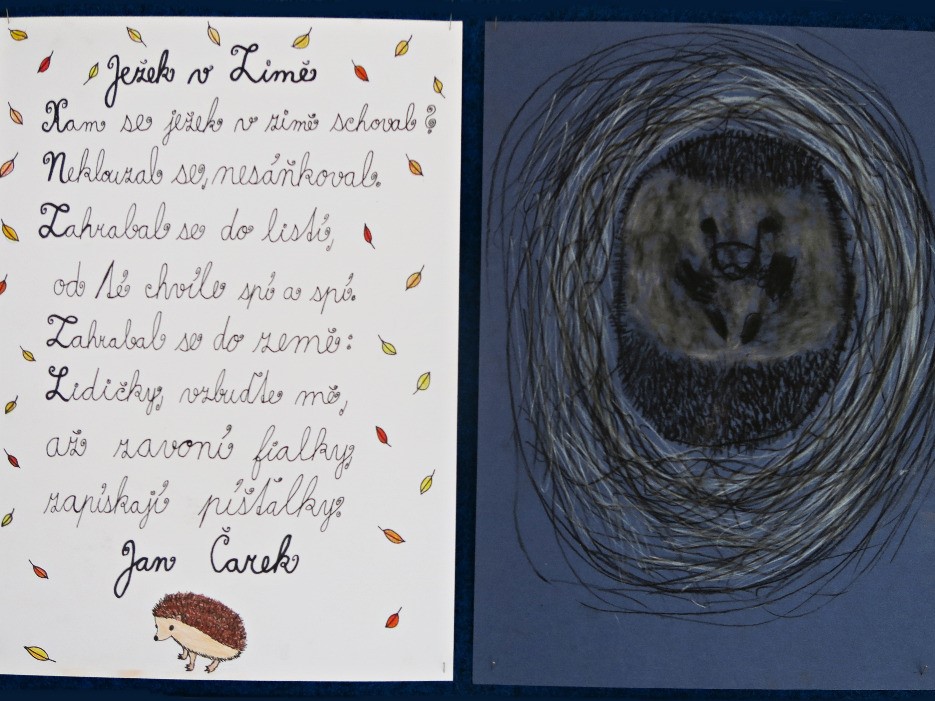 Ježek v Zimě
Kam se ježek v zimě schoval?
Neklouzal se, nesáňkoval.
Zahrabal se do listí,
od té chvíle spí a spí.
Zahrabal se do země:
Lidičky, vzbuďte mě,
až zavoní fialky,
zapískají píšťalky.
Jan Čarek